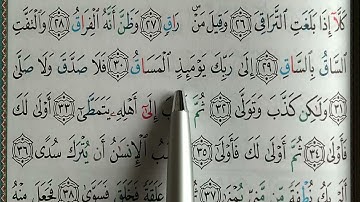 كَلَّآ إِذَا بَلَغَتِ ٱلتَّرَاقِيَ ﴿٢٦﴾ وَقِيلَ مَنْ رَاقٍ ﴿٢٧﴾ وَظَنَّ أَنَّهُ ٱلْفِرَاقُ ﴿٢٨﴾ وَٱلْتَفَّتِ
ٱلسَّاقُ بِٱلسَّاقِ ﴿٢٩﴾ إِلَىٰ رَبِّكَ يَوْمَئِذٍ ٱلْمَسَاقُ ﴿٣٠﴾ فَلَا صَدَّقَ وَلَا صَلَّىٰ
﴿٣١﴾ وَلَٰكِن كَذَّبَ وَتَوَلَّىٰ ﴿٣٢﴾ ثُمَّ إِلَىٰٓ أَهْلِهِ يَتَمَطَّىٰٓ ﴿٣٣﴾ أَوْلَىٰ لَكَ
فَأَوْلَىٰ ﴿٣٤﴾ ثُمَّ أَوْلَىٰ لَكَ فَأَوْلَىٰٓ ﴿٣٥﴾ ٱلْإِنسَانُ أَن يُتْرَكَ سُدًى ﴿٣٦﴾
نُطْفَةً مِّن مَّنِيٍّ يُمْنَىٰ ﴿٣٧﴾ عَلَقَةً فَخَلَقَ فَسَوَّىٰ ﴿٣٨﴾ فَجَعَلَ مِنْهُ